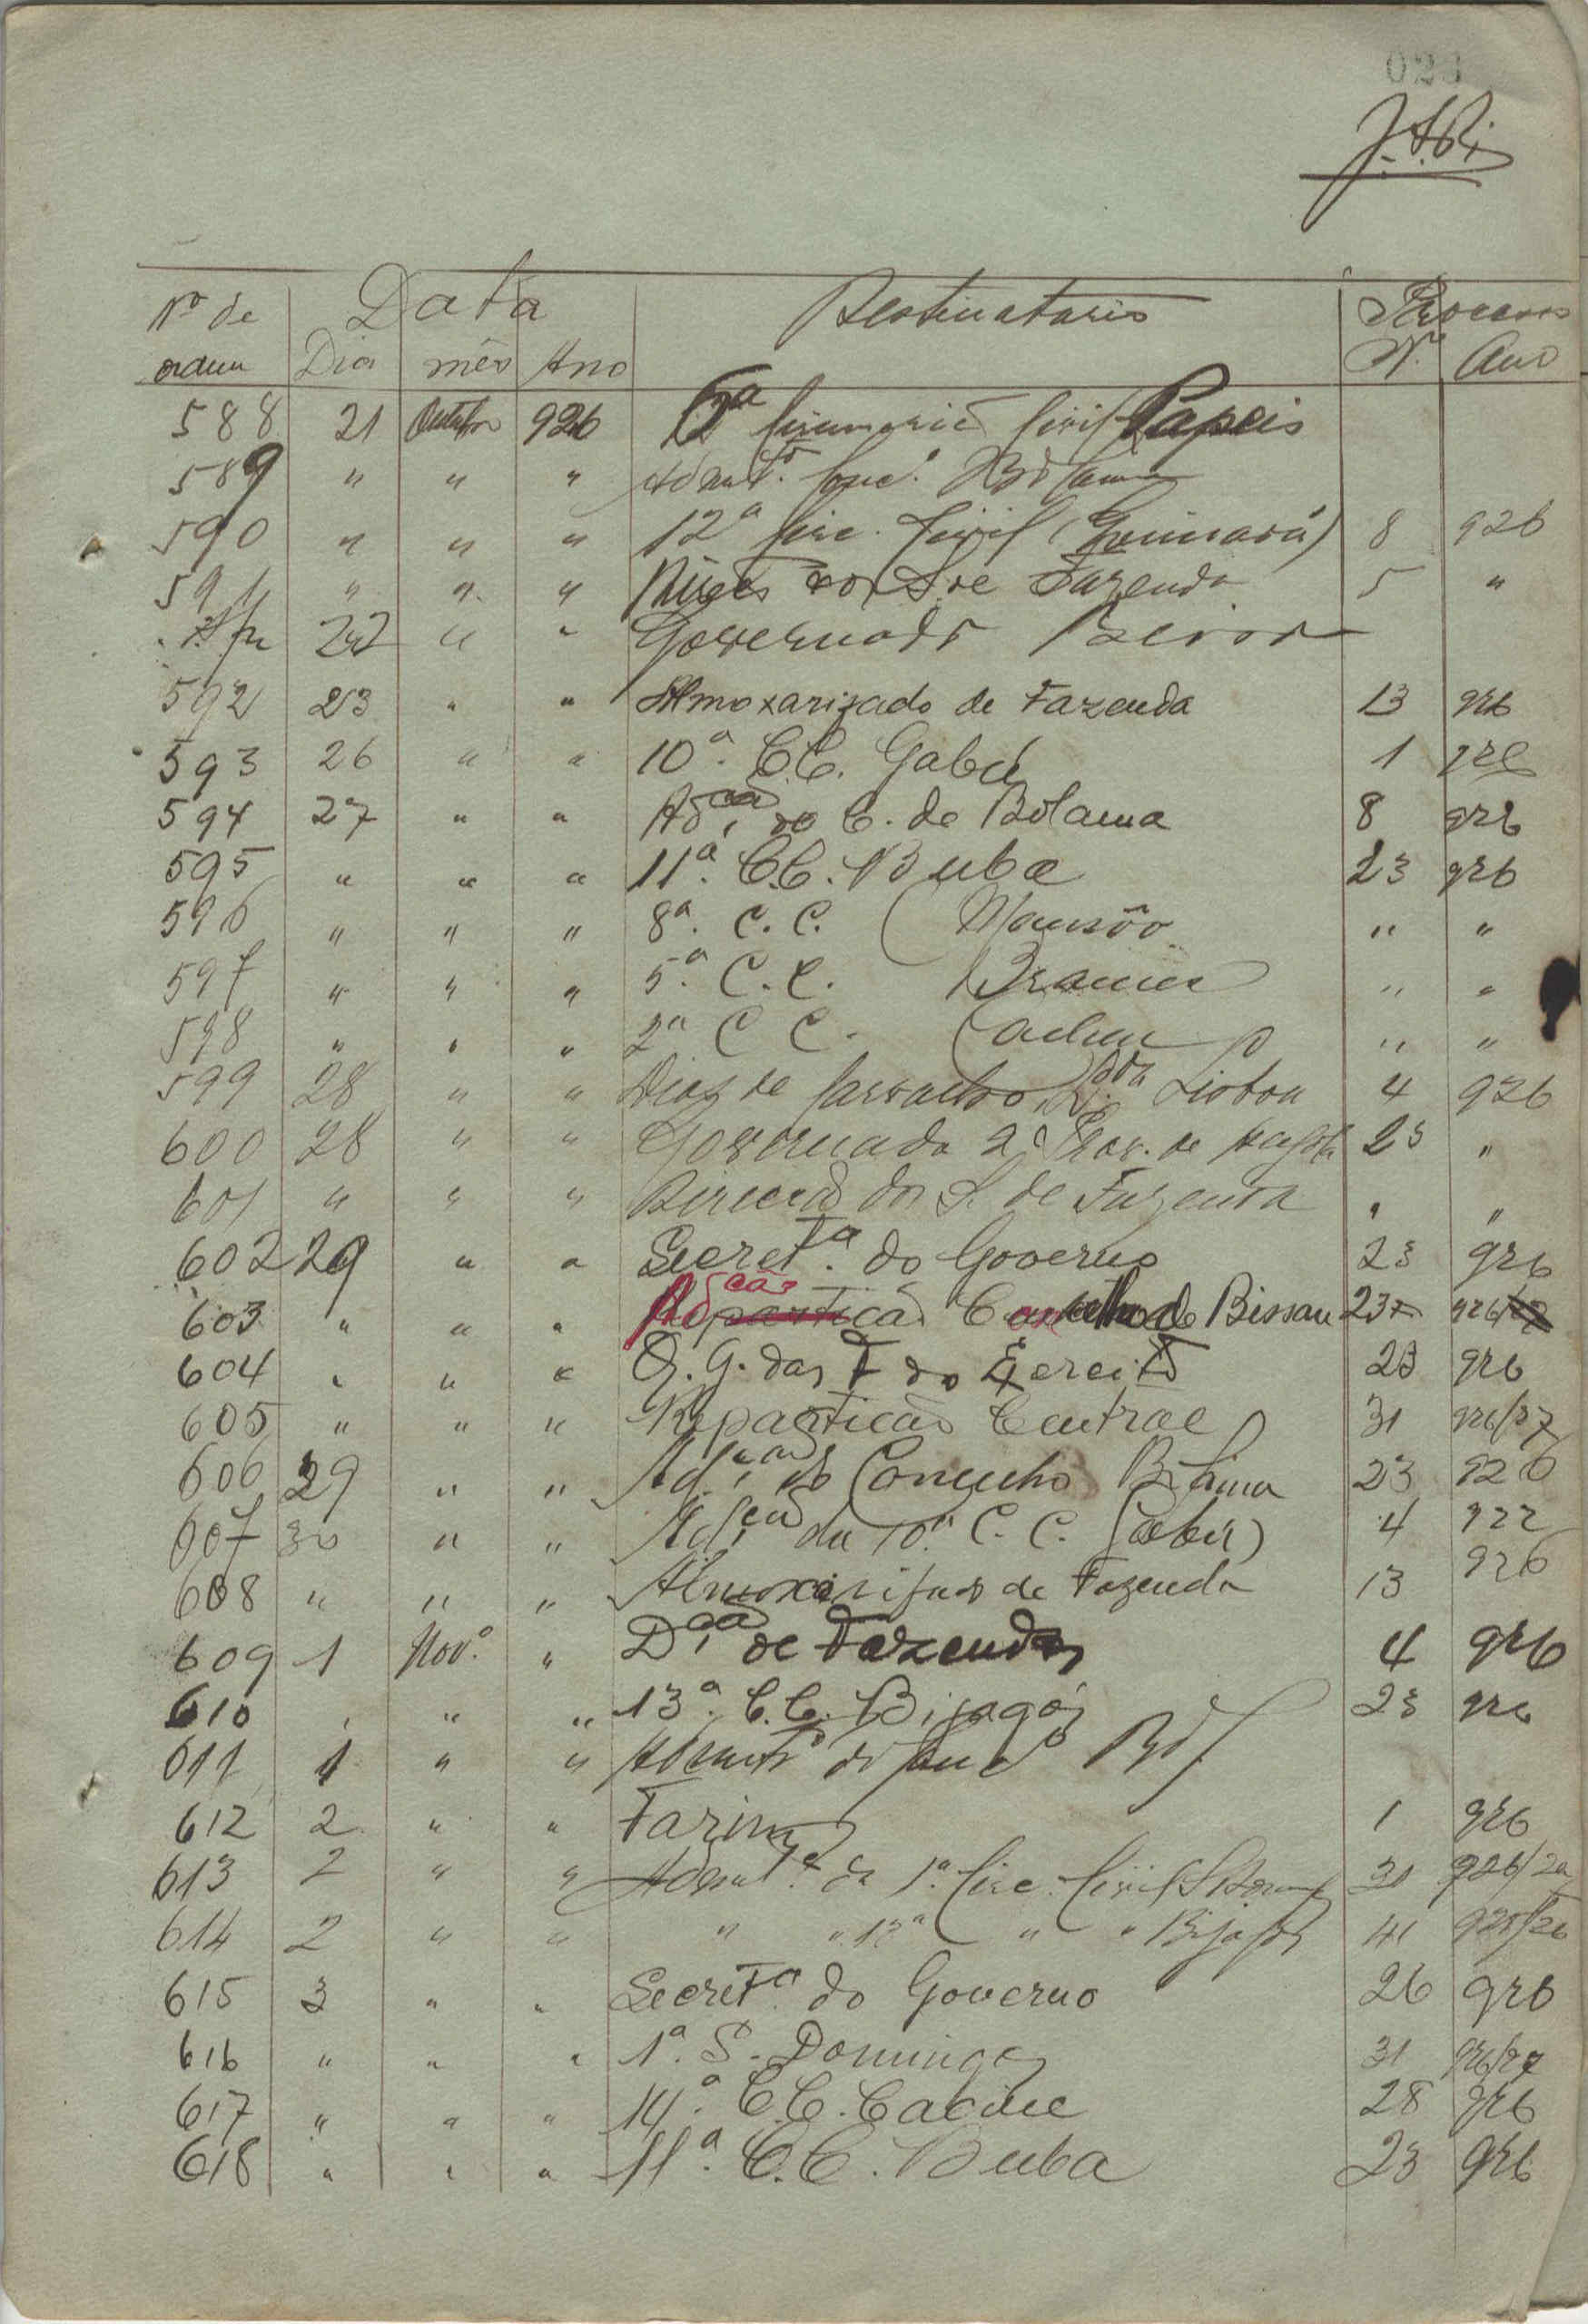 Nº de Data Destinatario Processo
ordem Dia mês Ano N.º Ano
588 21 Outubro 926 Civil Papeis
589 " " " Bolama
590 " " " 12ª Circ. Civil (Quinará) 8 926
591 " " " Fazenda 5 "
22 " " Governador
592 23 " " Almoxarifado de Fazenda 13 926
593 26 " " 10ª. C.C. Gabú 1 926
594 27 " " Adm.ção do C. de Bolama 8 926
595 " " " 11ª. C.C. Buba 23 926
596 " " " 8ª. C. C. (Mansôa " "
597 " " " 5ª. C. C. Brames " "
598 " " " 2ª C C. Cacheu " "
599 28 " " Dias de Carvalho Lisboa 4 926
600 28 " " Governador 23 "
601 " " " Direcção dos S. de Fazenda " "
602 29 " " Secret.ª do Governo 23 926
603 " " " Concelho de Bissau 23 926
604 " " " Q. G. das F do Exercito 23 926
605 " " " Repartição Central 31 926/27
606 29 " " do Concelho Bolama 23 926
607 30 " " da 10.ª C. C. (Gabú) 4 922
608 " " " Almoxarifado de Fazenda 13 926
609 1 Nov.º " D.ção de Fazenda 4 926
610 " " " 13ª. C.C. Bijagós 23 926
611 1 " " Bol.
612 2 " " Farim 1 926
613 2 " " da 1ª. Circ. Civil 31
614 2 " " " " 13ª " " Bijagós 41 925/26
615 3 " " Secretª. do Governo 26 926
616 " " " 1ª. S. Domingos 31 926/27
617 " " " 14.ª C.C. Cacine 28 926
618 " " " 11.ª C.C. Buba 23 926